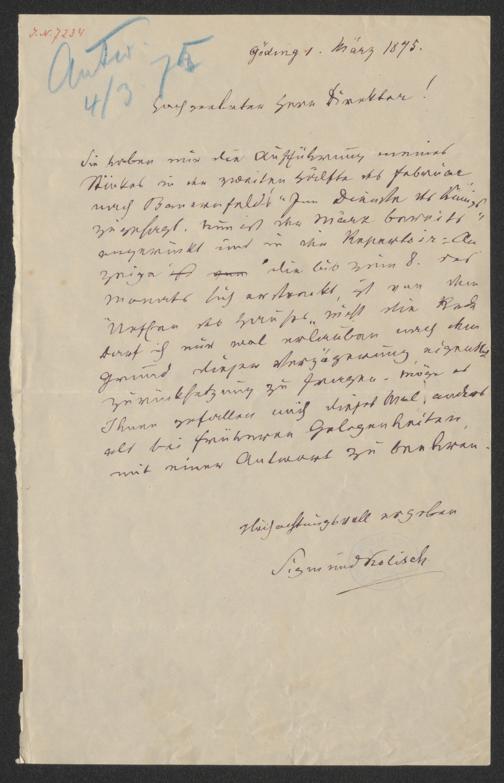 J.N. 7234
Antw.
4/3. 75
Göding 1. März 1875.
Hochgeehrter Herr Direktor!
Sie haben mir die Aufführung meines
Stückes in der zweiten Hälfte des Februar
nach Bauernfelds "Im Dienste des Königs"
zugesagt. Nun ist der März bereits
angerückt und in der Repertoir=An
zeige die bis zum 8. des
Monats sich erstreckt, ist von dem
des Hauses" nicht die Rede
Darf ich mir wol erlauben nach dem
Grund dieser Verzögerung
Zurücksetzung zu fragen. Möge es
Ihnen gefallen mich dieses Mal, anders
als bei früheren Gelegenheiten,
mit einer Antwort zu beehren.
Hochachtungsvoll ergeben
Sigmund Kolisch